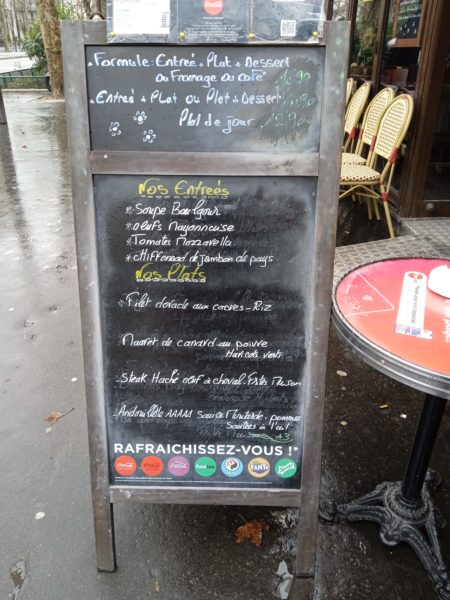 Formule: Entreé + Plat + Dessert
ou Fromage ou café
Entreé + Plat ou Plat + Dessert
Plat de jour
Nos Entreés
* Soupe Boulgour
* oeufs Mayonneuse
* Tomates Mozzarella
* chiffonad de Jambon de pays.
Nos Plats
* Filet dorade aux capres - Riz
Magret de canard au poivre
Haricots verts
Steak Haché oeuf à cheval. Frites Maison
Andouillete AAAAA Sauce Moutarde. pommes
Sautées à l'ail
RAFRAICHISSEZ-VOUS !*